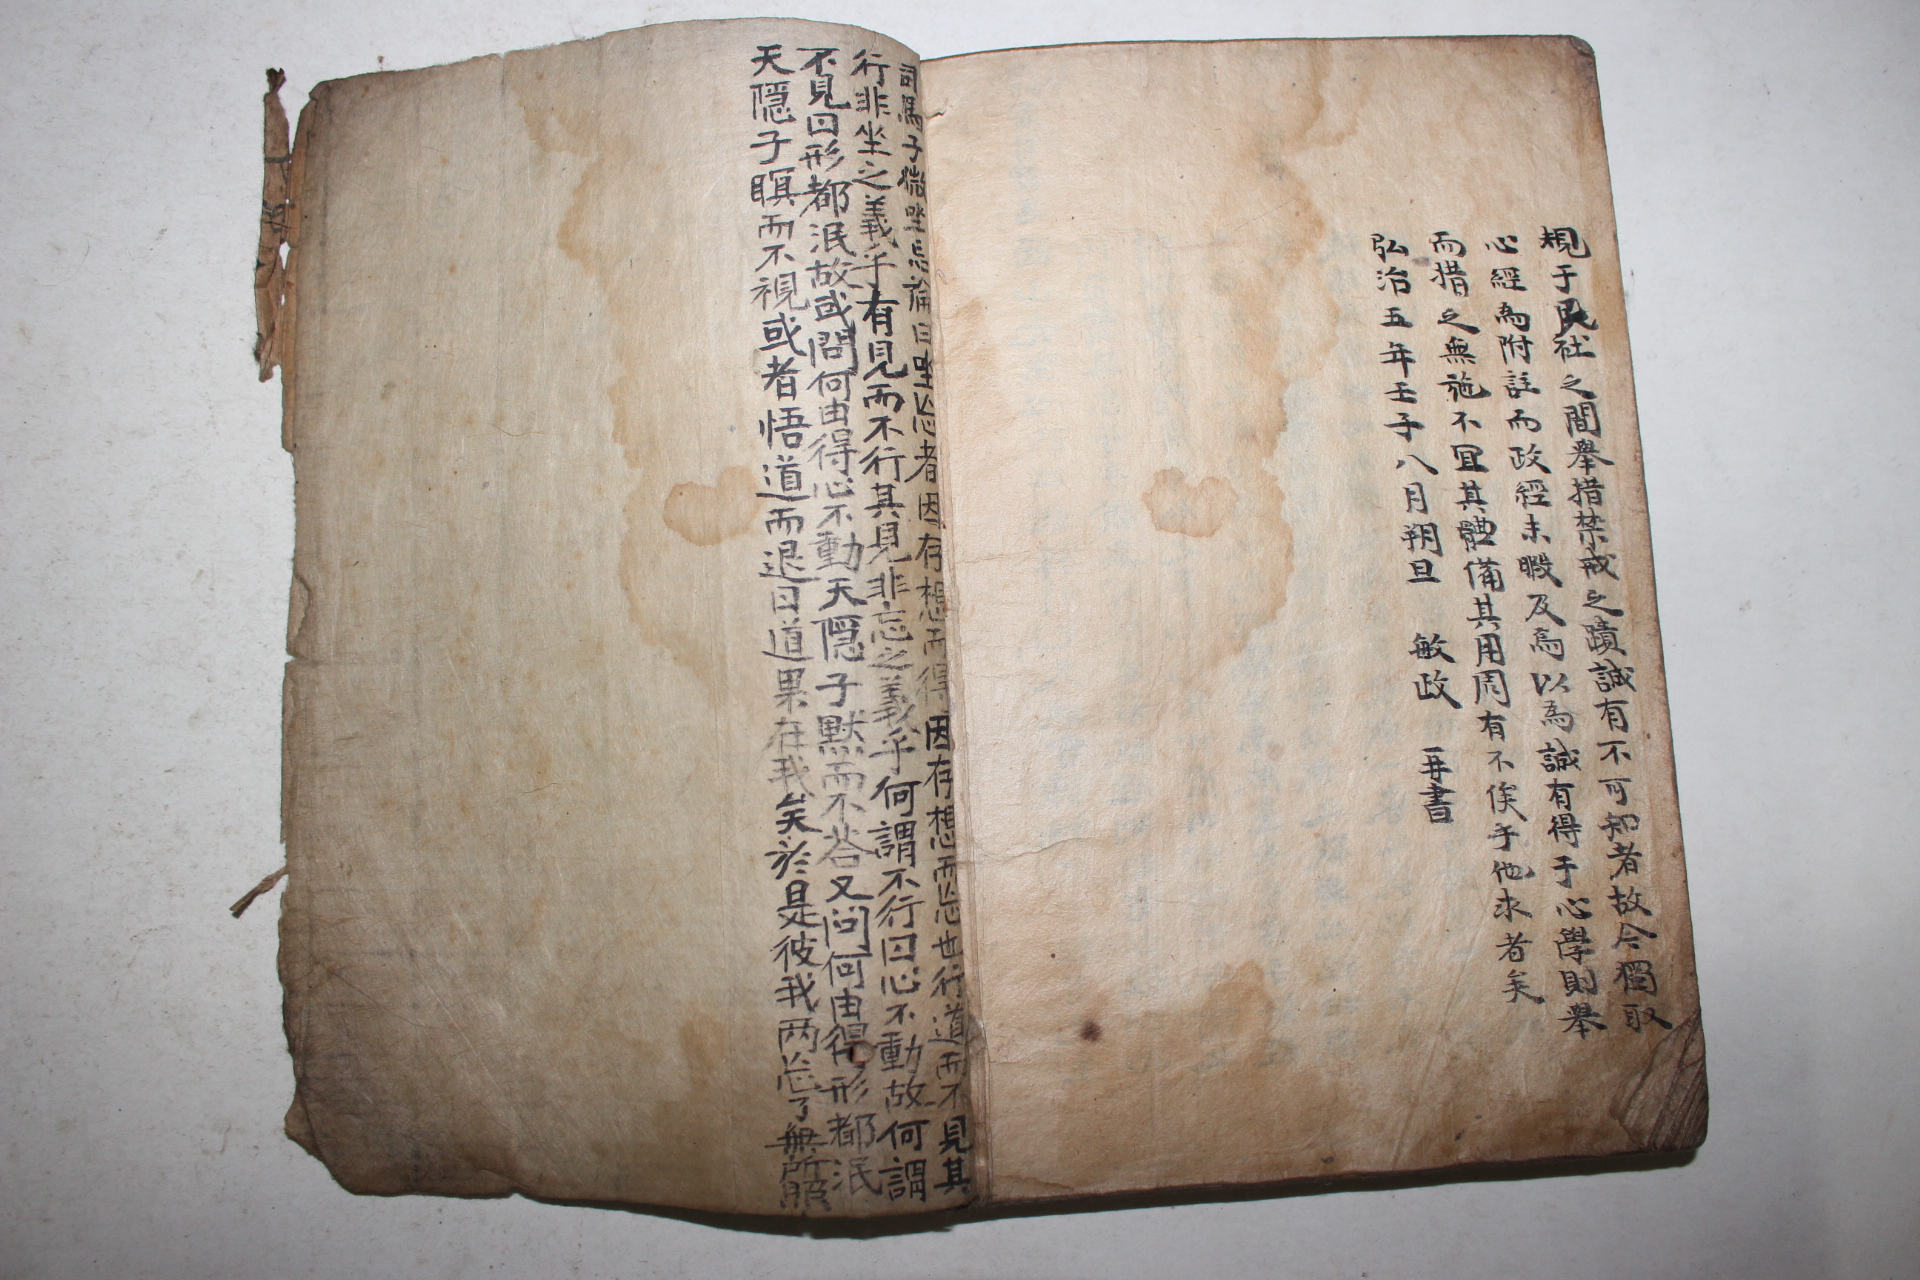 規于民社之間舉措禁戒之蹟誠有不可知者故今獨取
心經為附註而政經未暇及焉以為誠有得于心學則舉
而措之無施不冝其體備其用周有不俟乎他求者矣
弘治五年壬子八月朔旦 敏政 再書
司馬子微坐忘論曰坐忘者因存想而得因存想而忘也行道而不見其
行非坐之義乎有見而不行其見非忘之義乎何謂不行曰心不動故何謂
不見曰形都泯故或問何由得心不動天隱子默而不答又問何由得形都泯
天隱子瞑而不視或者悟道而退曰道果在我矣於是彼我两忘了無所照